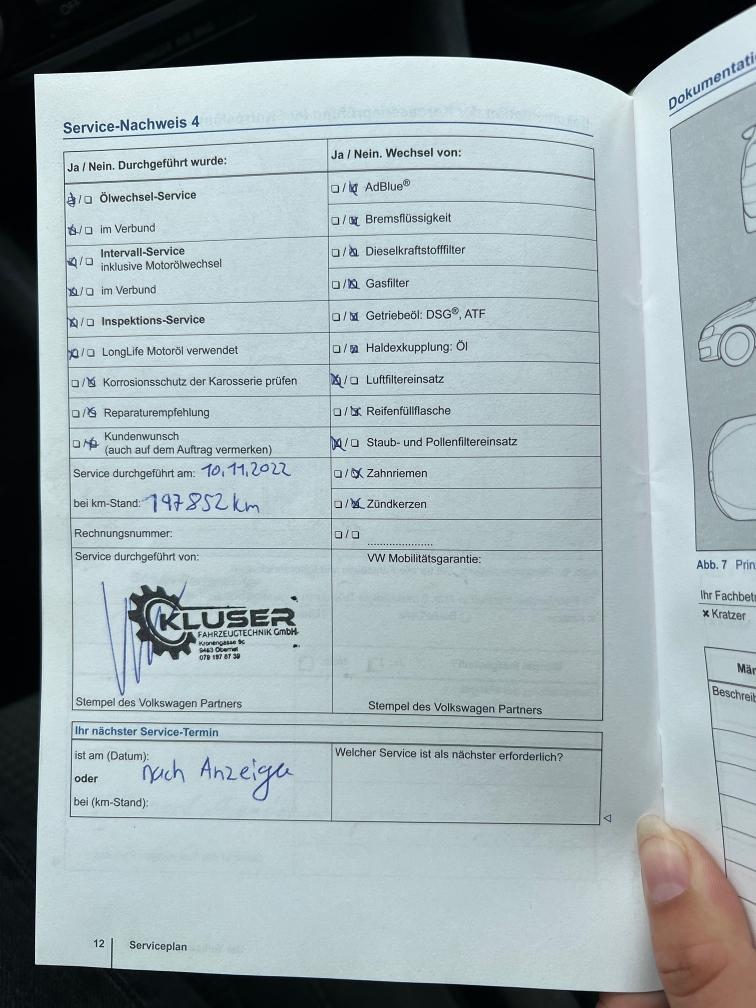 Service-Nachweis 4
Ja / Nein. Durchgeführt wurde:
☒/☐ Ölwechsel-Service
☒/☐ im Verbund
☒/☐ Intervall-Service
inklusive Motorölwechsel
☒/☐ im Verbund
☒/☐ Inspektions-Service
☒/☐ LongLife Motoröl verwendet
☐/☒ Korrosionsschutz der Karosserie prüfen
☐/☒ Reparaturempfehlung
☐/☒ Kundenwunsch
(auch auf dem Auftrag vermerken)
Service durchgeführt am: 10.11.2022
bei km-Stand: 197852 km
Rechnungsnummer:
Service durchgeführt von:
KLUSER
FAHRZEUGTECHNIK GmbH
Kronengasse 9c
9463 Oberriet
079 197 87 39
Stempel des Volkswagen Partners
Ja / Nein. Wechsel von:
☐/☒ AdBlue®
☐/☒ Bremsflüssigkeit
☐/☒ Dieselkraftstofffilter
☐/☒ Gasfilter
☐/☒ Getriebeöl: DSG®, ATF
☐/☒ Haldexkupplung: Öl
☒/☐ Luftfiltereinsatz
☐/☒ Reifenfüllflasche
☒/☐ Staub- und Pollenfiltereinsatz
☐/☒ Zahnriemen
☐/☒ Zündkerzen
☐/☐ ......................
VW Mobilitätsgarantie:
Stempel des Volkswagen Partners
Ihr nächster Service-Termin
ist am (Datum):
oder nach Anzeige
bei (km-Stand):
Welcher Service ist als nächster erforderlich?
12 Serviceplan
Abb. 7
× Kratzer